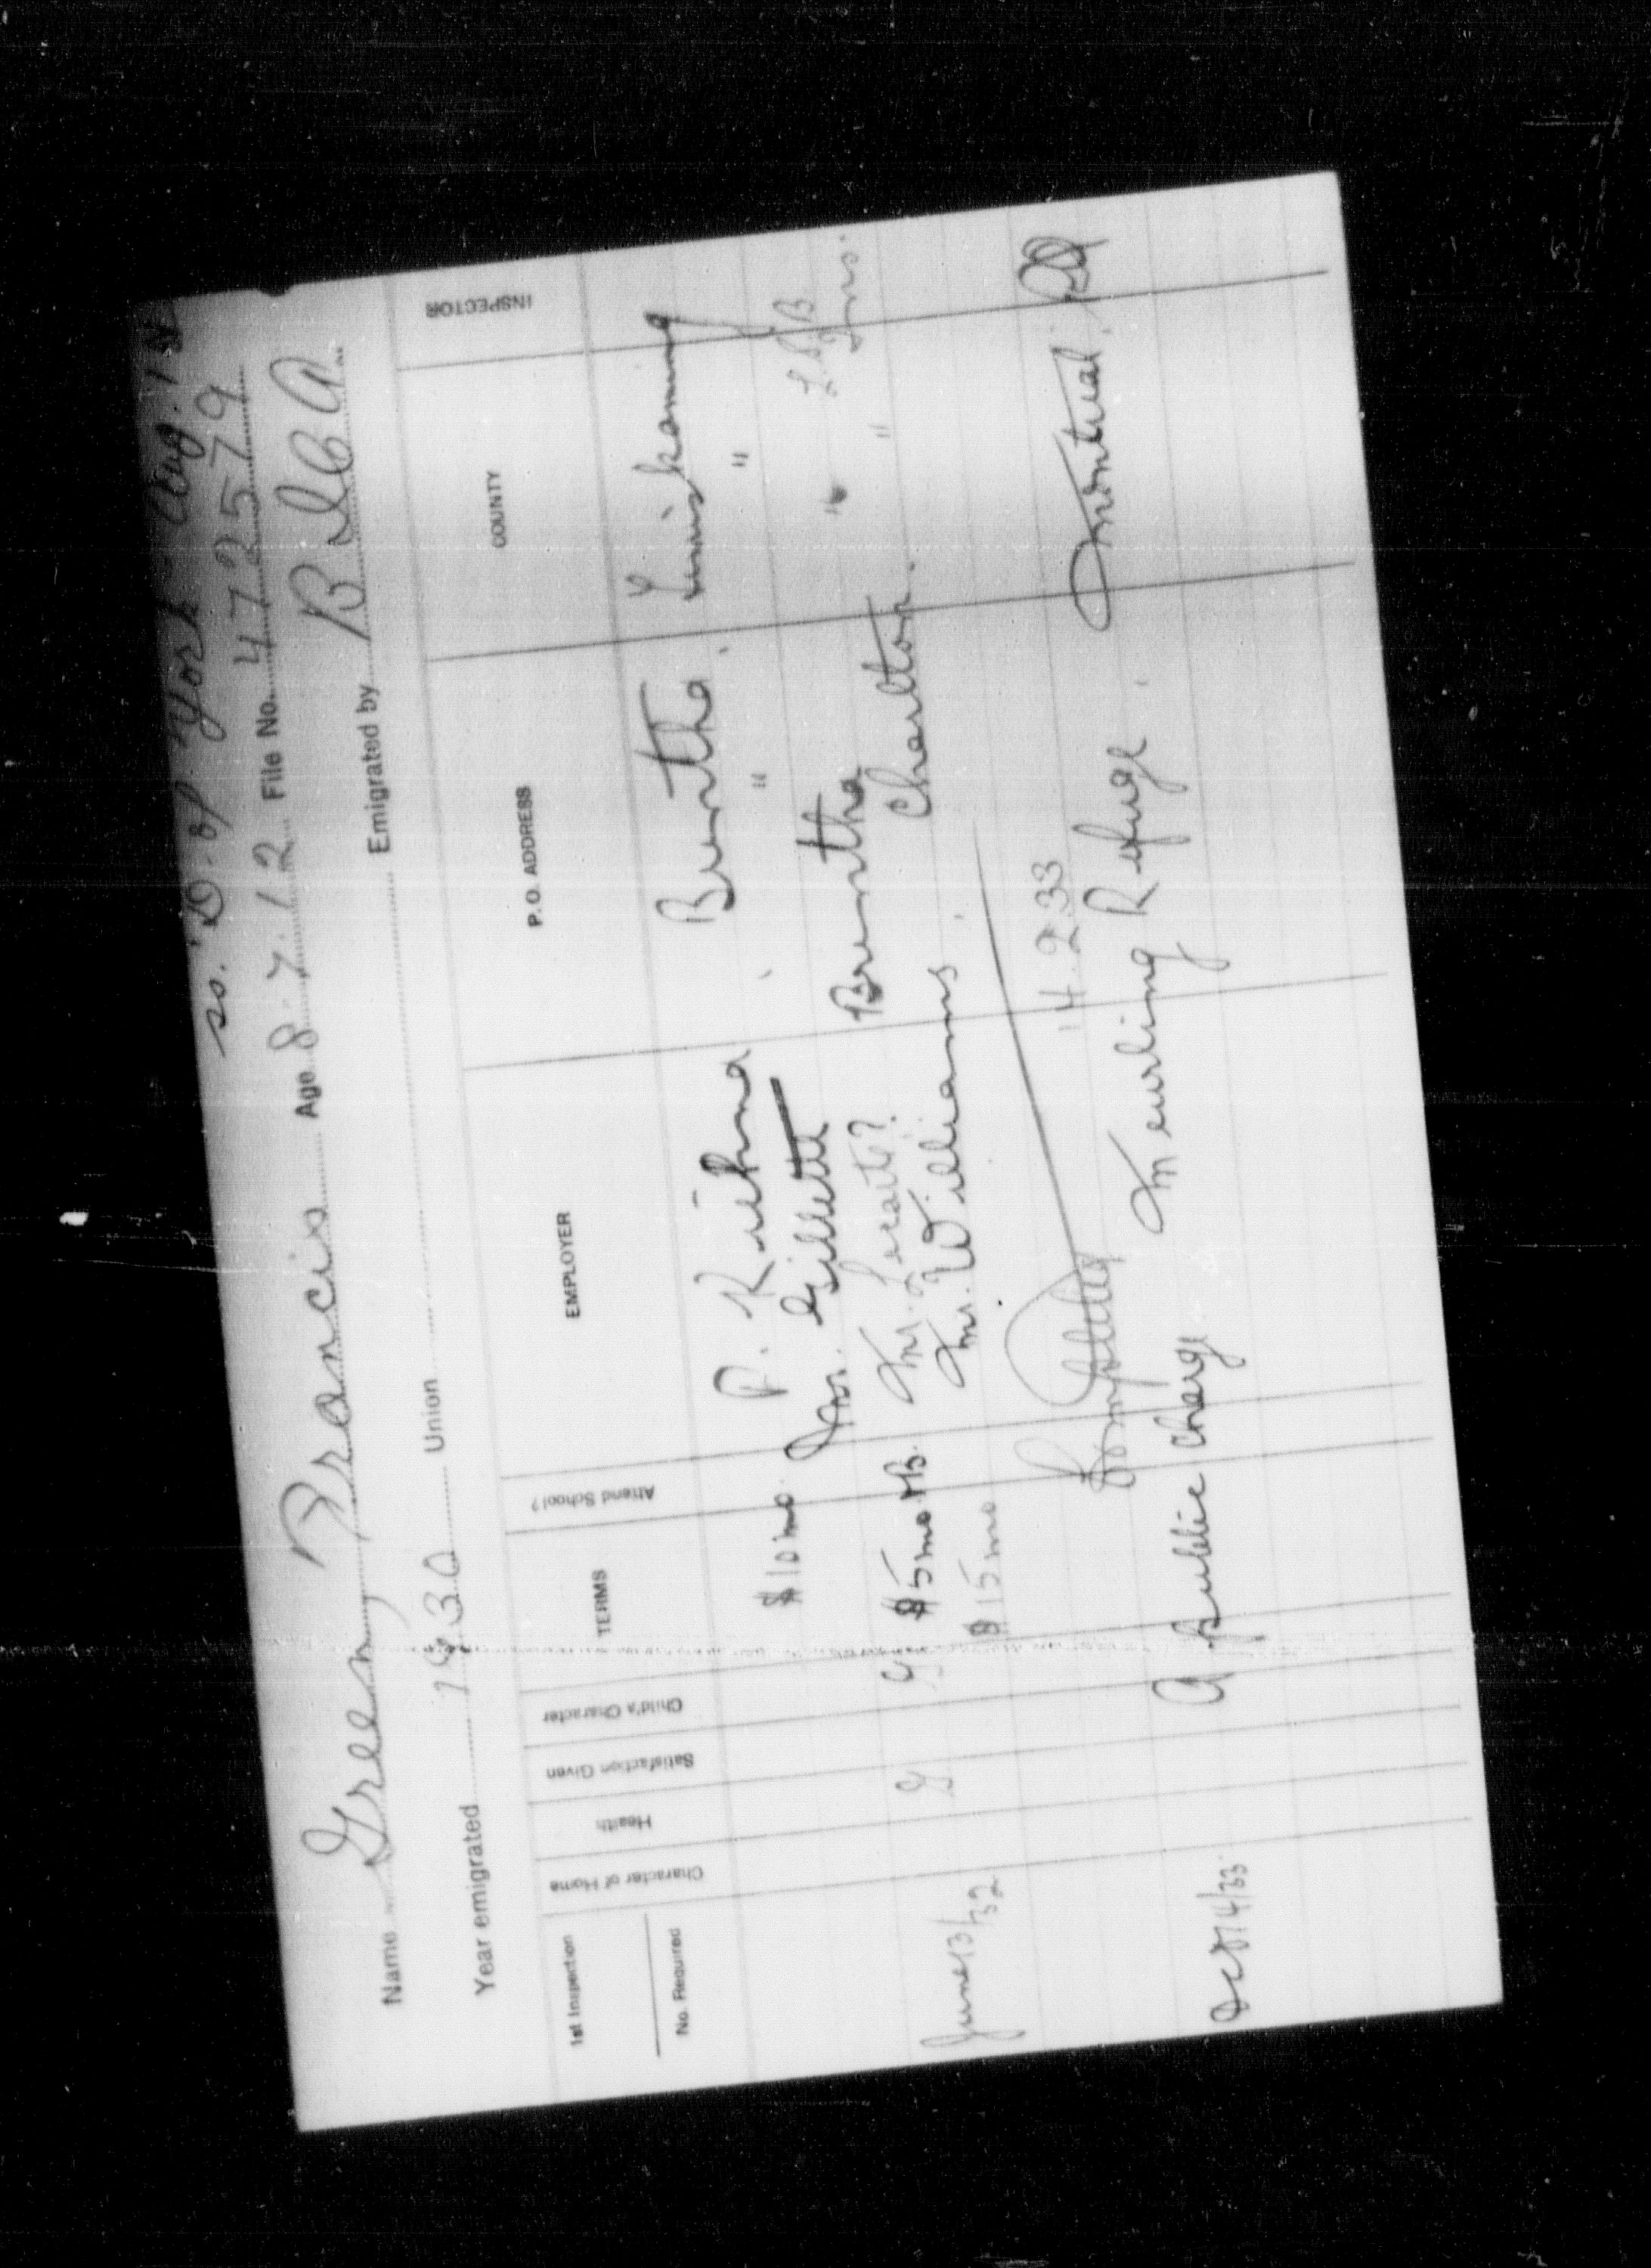 ss. D. of York Aug. 1
Name Green, Francis Age 8.7.12 File No. 472579
Year emigrated 1930 Union Emigrated by B I C A
1st Inspection
No. Required
Character of Home
Health
Satisfaction Given
Child's Character
TERMS
Attend School?
EMPLOYER
P. O. ADDRESS
COUNTY
INSPECTOR
$10 mo P. Brentha. Temiskaming
Mr. Gillette " "
June 13/32 G G $5 mo + B. Mr. Brentha " L B
$15 mo Mr. Williams. Charlton. "
Completed 14.2.33
Oct 14/33 A public charge Meurling Refuge. Montreal.